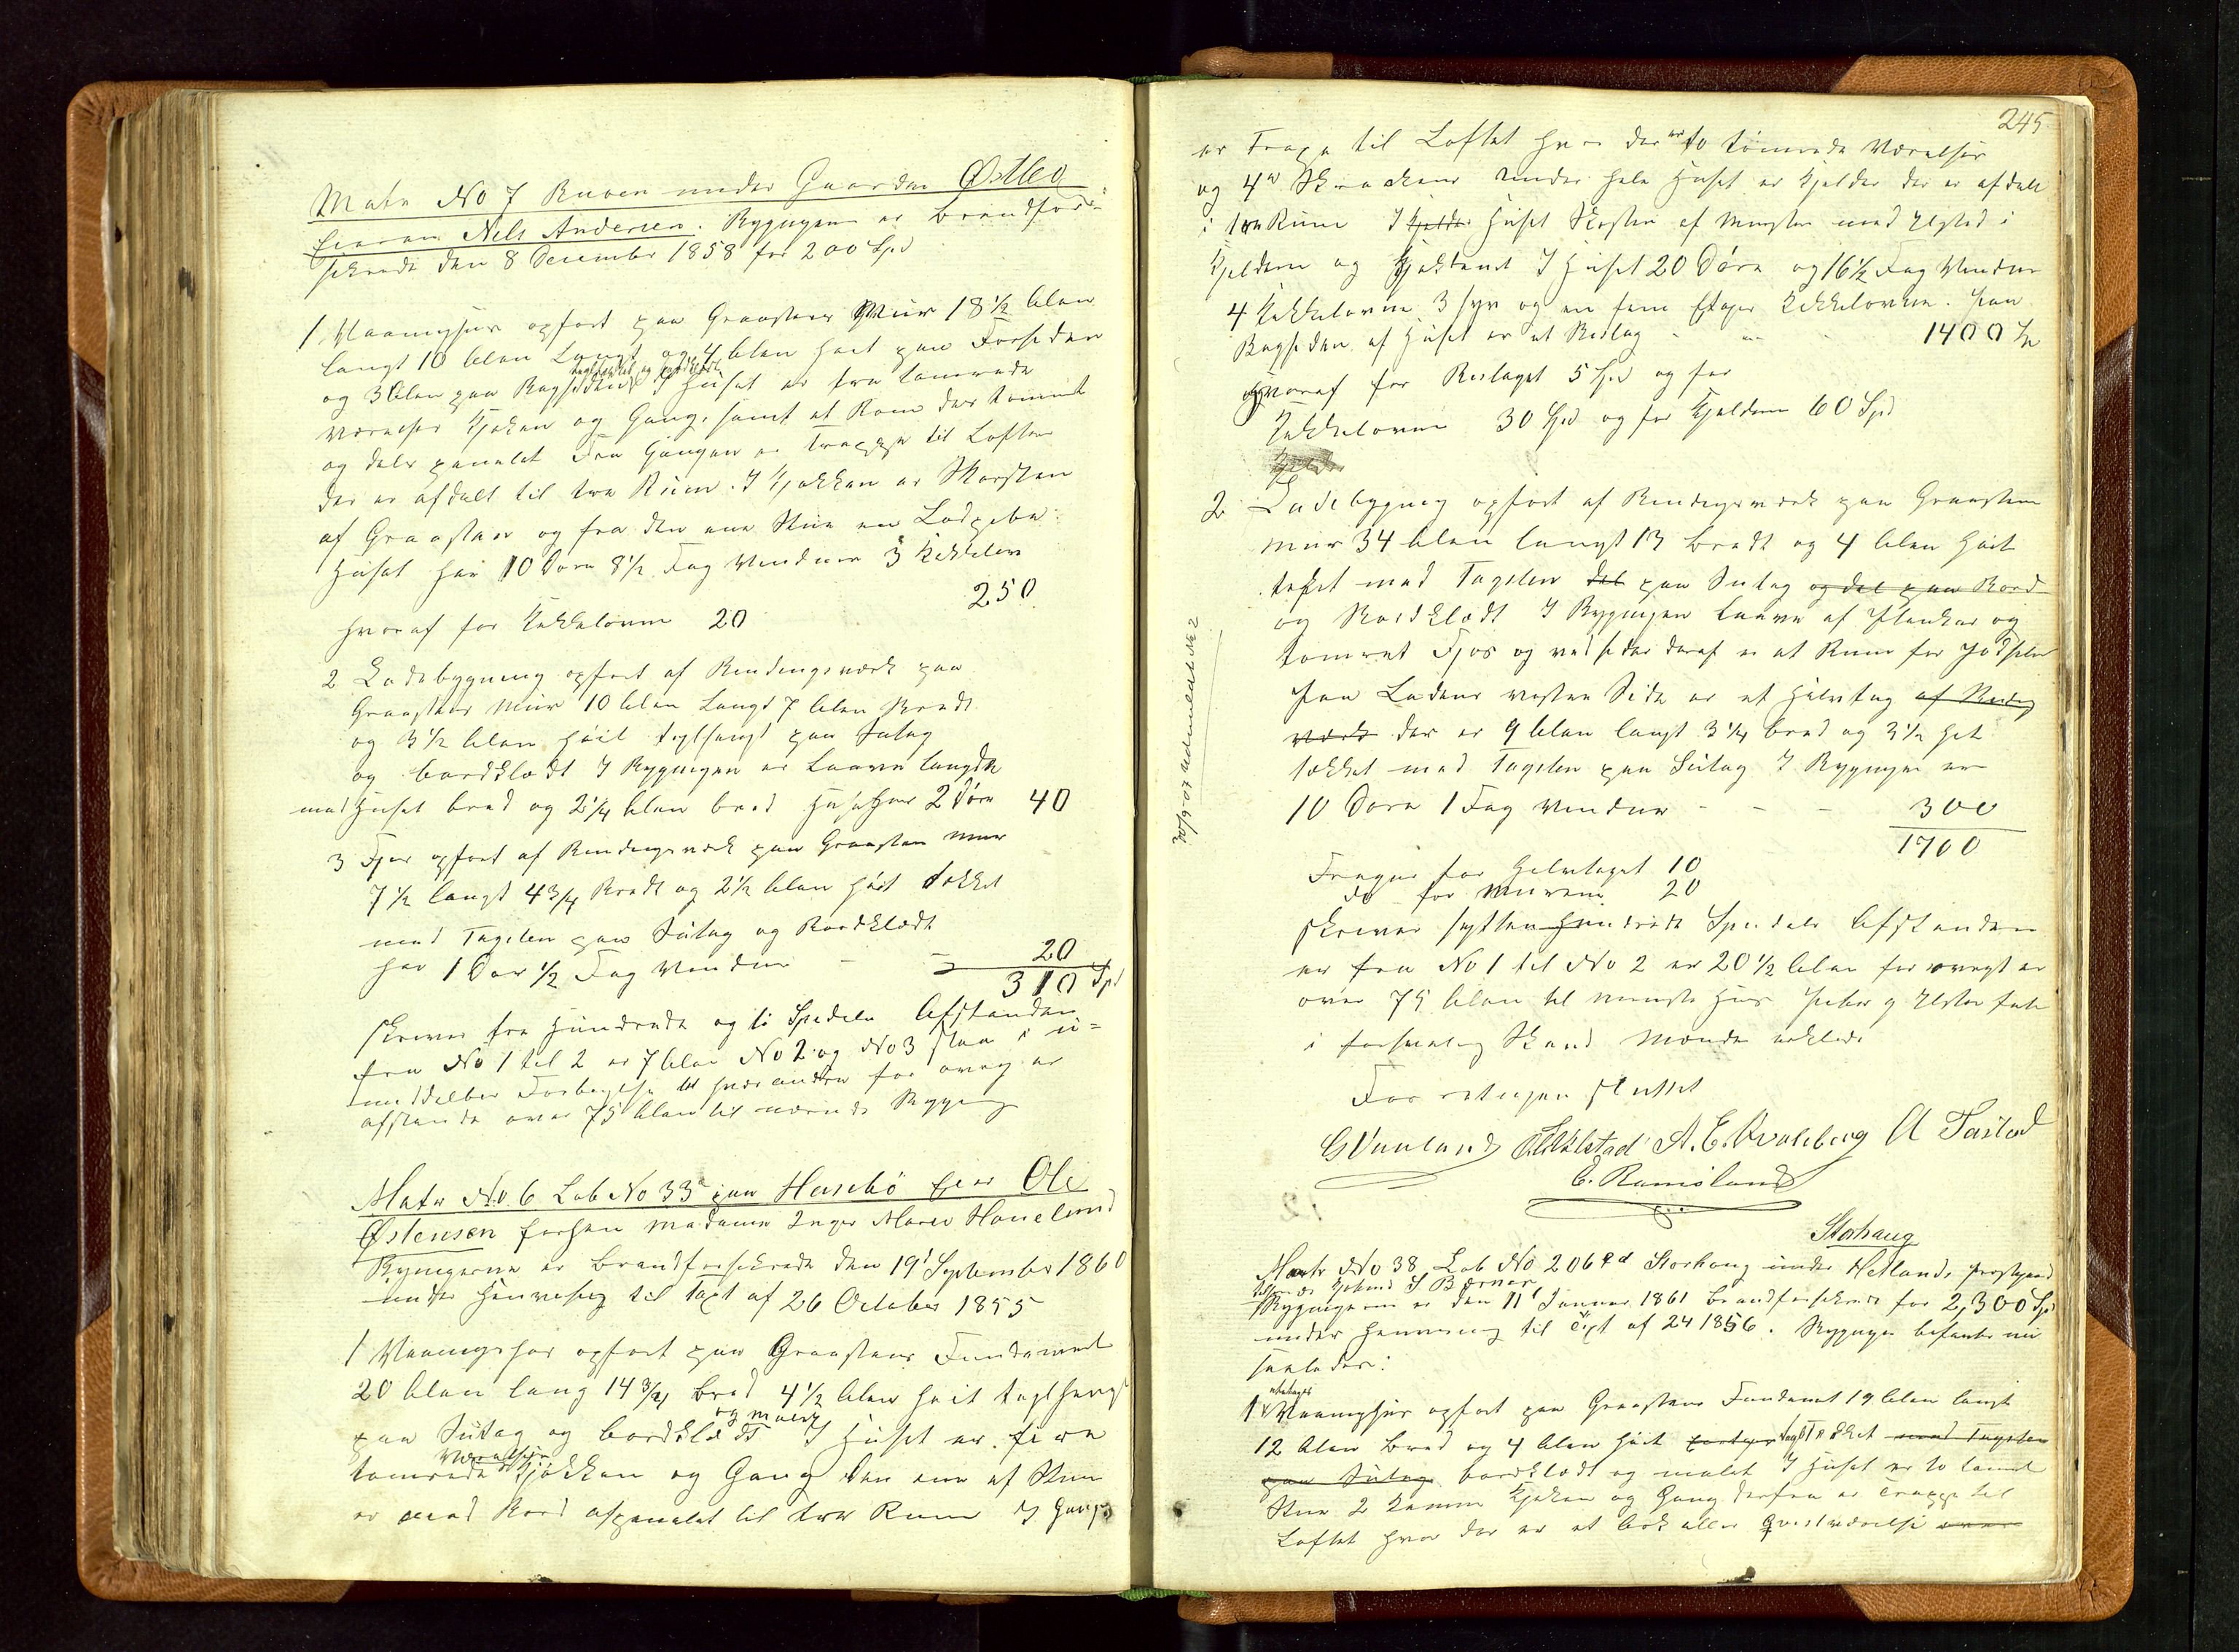 Matr No 7 Ruven under Gaarden Østbø
Eieren Nels Andersen. Bygngen er Brandfor-
sikrede den 8 December 1858 for 200 Spd
1 Vaaningshus opført paa Graastens Muur 18 1/2 Alen
langt 10 Alen og 4 Alen høit paa Forsiden
og 3 Alen paa Bagsiden I Huset er tre tømrede
Værelser Kjøken og Gang, samt et Rum der tømret
og dels panelet Fra Gangen er Trappe til Loftet
der er afdelt til tre Rum. I Kjøkken er Skorsten
af Graasten og fra den ene Stue en
Huset har 10 Døre 8 1/2 Fag Vinduer 3 Kakkelovn
250
hvoraf for Kakkelovnne 20
2 Ladebygning opført af Bindingsværk paa
Graastens Muur 10 Alen Langt 7 Alen Bredt
og 3 1/2 Alen høit teglhængt paa Sutag
og bordklædt I Bygningen er Laave langde
med Huset bred og 2 1/4 Alen bred Huset har 2 Døre 40
3 Fjøs opført af Bindingsværk paa Graasten muur
7 1/2 langt 4 3/4 Bredt og 2 1/2 Alen høit tekket
med Tagsten paa Sutag og Bordklædt
har 1 Dør 1/2 Fag Vinduer - - 20
310 Spd
skriver tre Hundrede og ti Spedaler Afstanden
fra No 1 til 2 er 7 Alen No 2 og No 3 staa i u-
middelbar Forbindelse til hverandre for øvrig er
afstande over 75 Alen til nærmeste Bygning
Matr No. 6 Lob No 33 paa Hasebø Eier Ole
Østensen forhen Madame Inger Marie Haueland
Bygningerne er Brandforsikrede den 19' September 1860
under Henvisning til Taxt af 26 October 1855
1 Vaaningshus opført paa Graastens Fundament
20 Alen lang 14 3/4 Bred 4 1/2 Alen høit teglhængt
og malet
paa Sutag og bordklædt I Huset er fire
Værelser
tømrede Kjøkken og Gang den ene af Stuen
er med Bord afpanelet til tre Rum I Gangen
245
er Trappe til Loftet hvor der er to tømrede Værelser
og 4 under hele Huset er Kjelder der er afdelt
i Rum I Kjelder Huset Skorsten af Mursten med Ildsted i
Kjelderen og Kjøkkenet I Huset 20 Døre og 16 1/2 Fag Vinduer
4 Kakkelovne, 3 fyr og en fem Etages Kakkelovn. Paa
Bagsiden af Huset er et Bislag - - - 1400 Sp
hvoraf for Bislaget 5 Spd og for
Kakkelovne 30 Spd og for Kjelderen 60 Spd
Kjelder
2 Ladebygning opført af Bindingsværk paa Graasten
muur 34 Alen langt 13 bredt og 4 Alen høit
tekket med Tagsten del paa Sutag og del paa Bord
og Bordklædt I Bygningen Laave af Planker og
tømret Fjøs og ved siden deraf er et Rum for
Paa Ladens vestre Side er et Halvtag af Binding
værk der er 9 Alen langt 3 1/4 bred og 3 1/2 høit
tekket med Tagsten paa Sutag I Bygningen er
10 Døre 1 Fag Vinduer - - - 300
1700
Fragaar for Halvtaget 10
do for Murene 20
skriver sytten hundrede Spedaler Afstanden
er fra No 1 til No 2 er 20 1/2 Alen for øvrigt er
over 75 Alen til
i forsvarlig Stand
Forretningen sluttet
G Vauland A. E. Qvaleberg A Tasted
E. Ramsland
Storhaug
Matr No 38 Lob No 206 qd Storhaug under Hetlands Prestegaard
Bygningerne er den 11' Januar 1861 Brandforsikrede for 2,300 Sp
under Henvisning til Taxt af 24 1856. Bygningen befandtes nu
saaledes:
1 Vaaningshus opført paa Graastens Fundament 19 Alen langt
12 Alen bred og 4 Alen høit teglTækket med Tagsten
paa Sutag bordklædt og malet I Huset er to tømret
Stuer 2 Kammer Kjøken og Gang derfra er Trappe til
Loftet hvor der er et Ark eller Qvistværelse